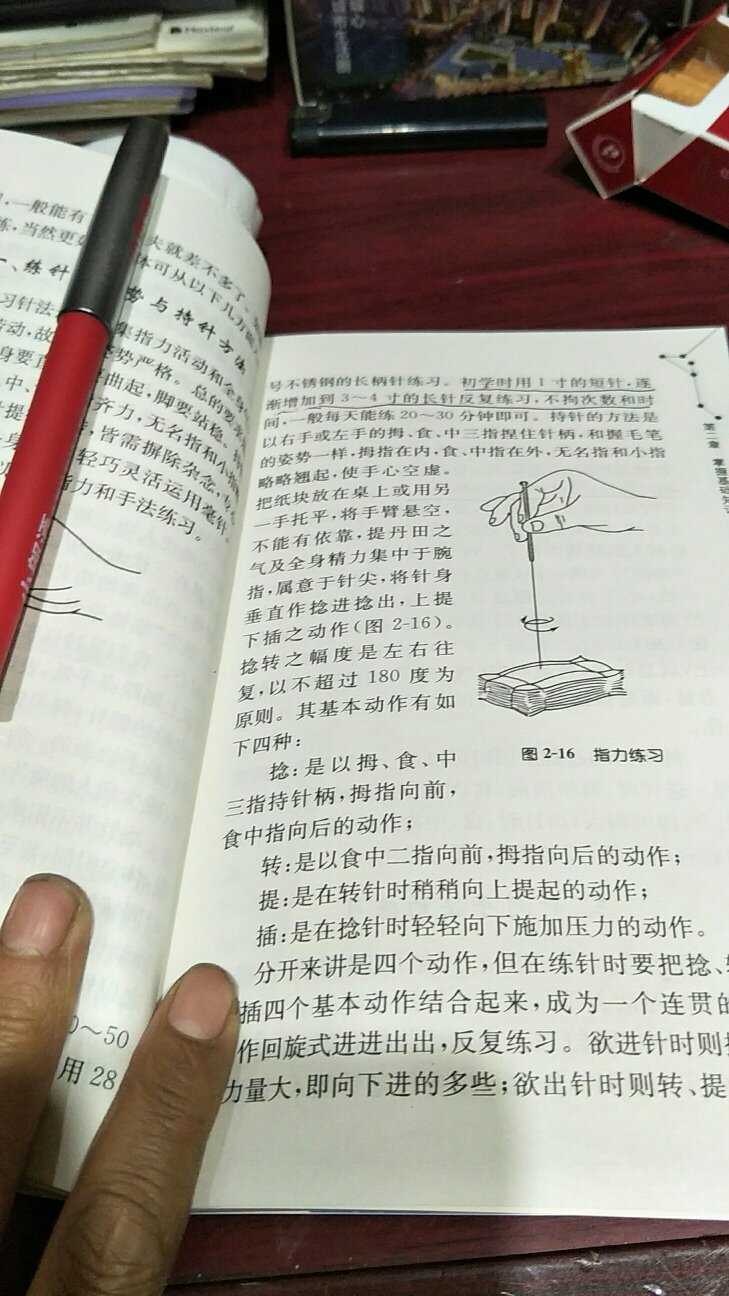 ，一般能有
练，当然更
夫就差不多了。
体可从以下几方面
、练针
势与持针方法
习针法
集指力活动和全身
劳动，故
姿势严格。总的要求
身要直
曲起，脚要站稳。
齐力，无名指和小指
，皆需摒除杂念，
轻巧灵活运用毫针。
指力和手法练习。
0～50
用 28
号不锈钢的长柄针练习。初学时用 1 寸的短针，逐
渐增加到 3～4 寸的长针反复练习，不拘次数和时
间，一般每天能练 20～30 分钟即可。持针的方法是
以右手或左手的拇、食、中三指捏住针柄，和握毛笔
的姿势一样，拇指在内，食、中指在外，无名指和小指
略略翘起，使手心空虚。
把纸块放在桌上或用另
一手托平，将手臂悬空，
不能有依靠，提丹田之
气及全身精力集中于腕
指，属意于针尖，将针身
垂直作捻进捻出，上提
下插之动作(图 2-16)。
捻转之幅度是左右往
复，以不超过 180 度为
原则。其基本动作有如
下四种：
图 2-16 指力练习
捻：是以拇、食、中
三指持针柄，拇指向前，
食中指向后的动作；
转：是以食中二指向前，拇指向后的动作；
提：是在转针时稍稍向上提起的动作；
插：是在捻针时轻轻向下施加压力的动作。
分开来讲是四个动作，但在练针时要把捻、
插四个基本动作结合起来，成为一个连贯的
作回旋式进进出出，反复练习。欲进针时则
力量大，即向下进的多些；欲出针时则转、提
第二章 掌握基础知识